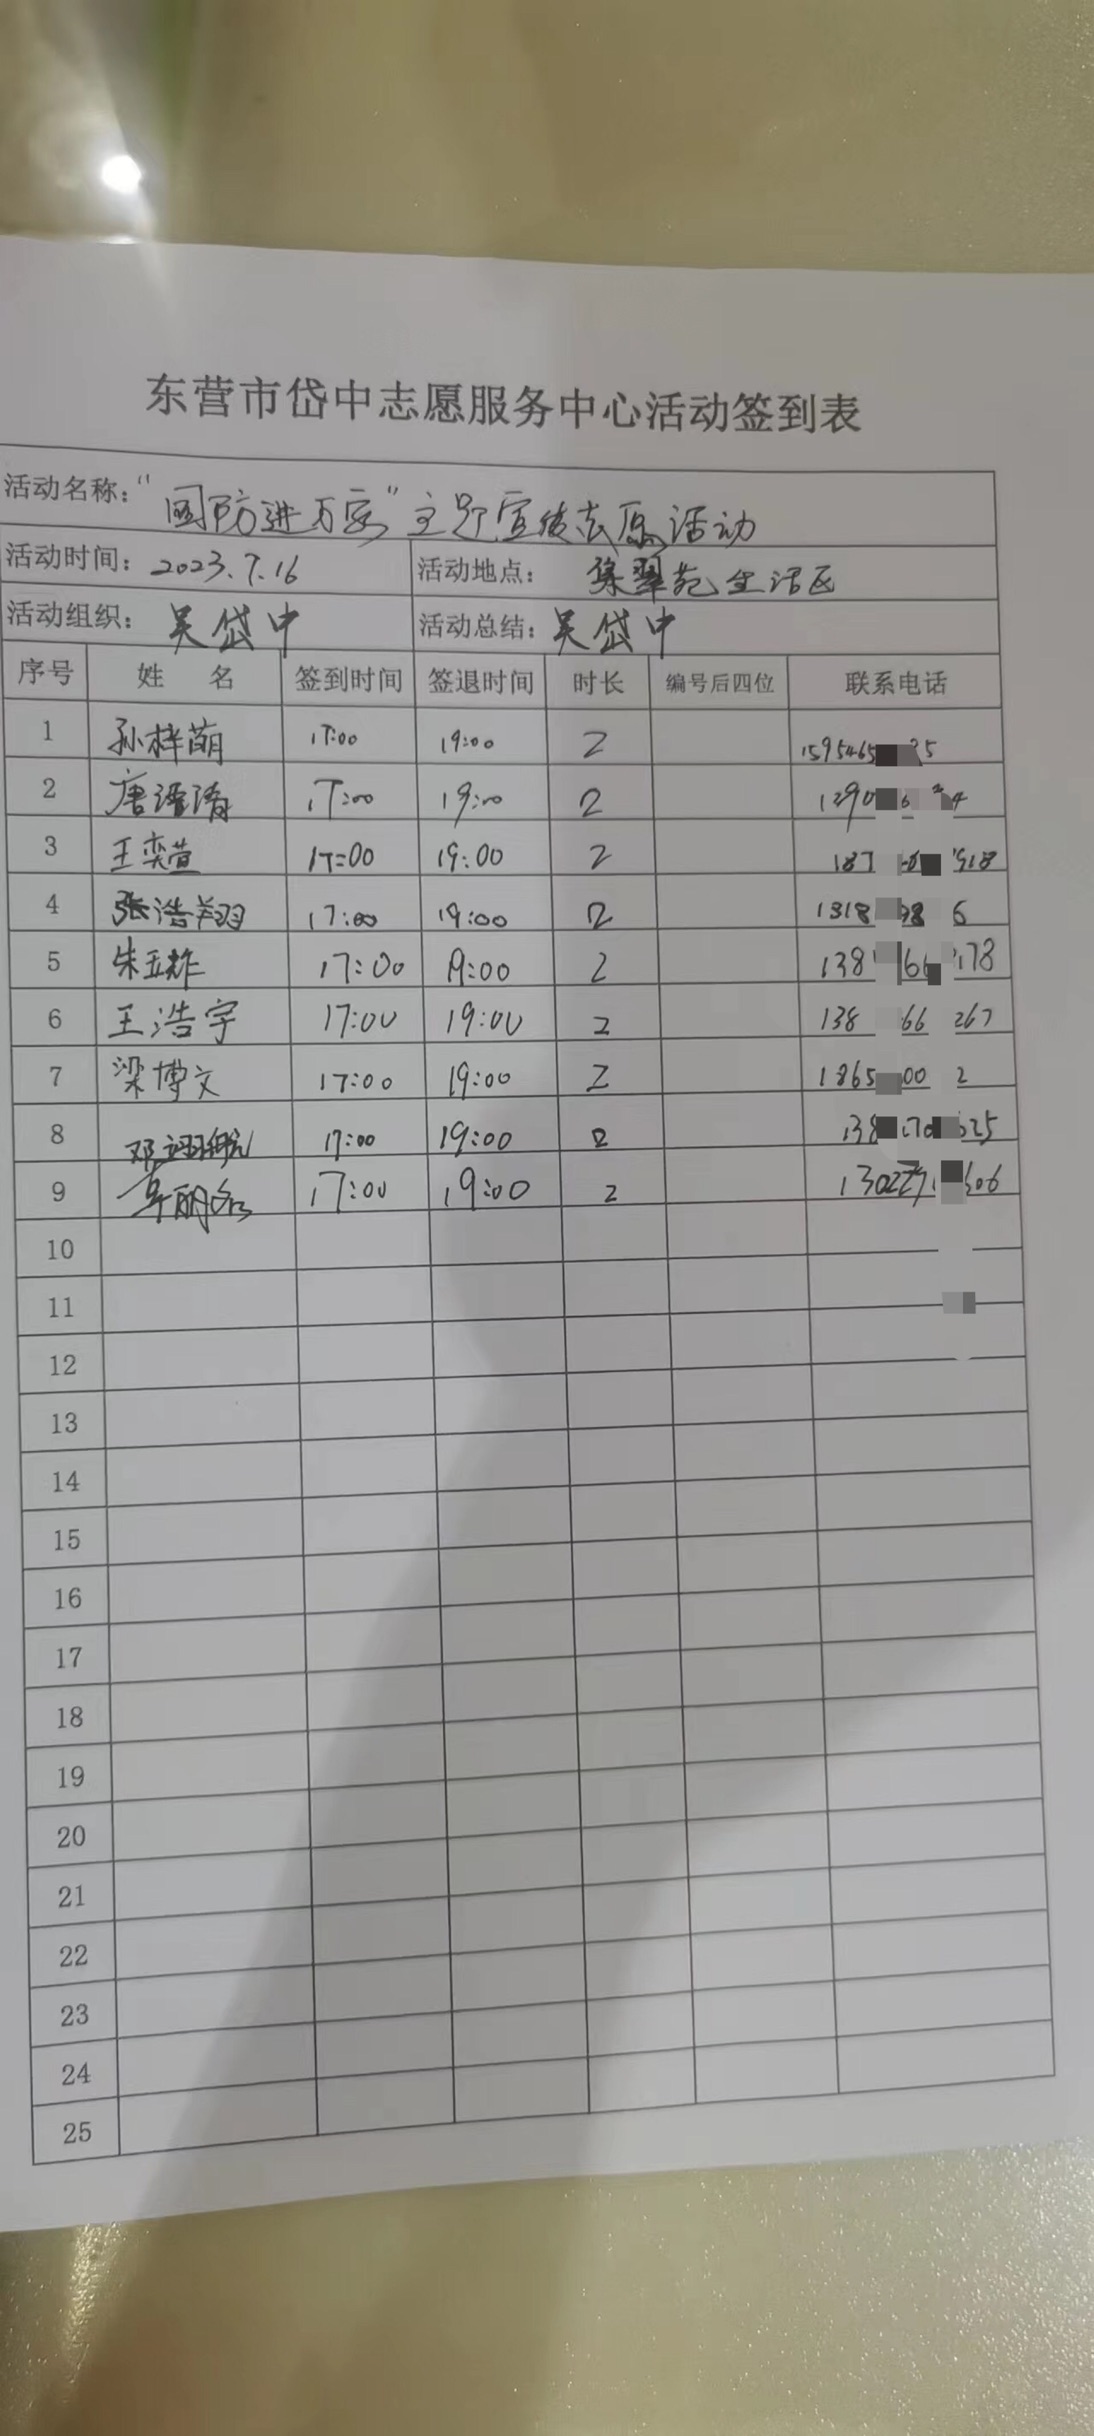 东营市岱中志愿服务中心活动签到表
活动名称：“国防进万家”主题宣传志愿活动
活动时间：2023.7.16 活动地点：集翠苑生活区
活动组织：吴岱中 活动总结：吴岱中
序号 姓 名 签到时间 签退时间 时长 编号后四位 联系电话
1 孙梓萌 17:00 19:00 2 1595465 35
2 唐 17:00 19:00 2
3 王奕萱 17:00 19:00 2 187 918
4 张浩翔 17:00 19:00 2 1318 98 6
5 朱 17:00 19:00 2 138 66 178
6 王浩宇 17:00 19:00 2 138 66 267
7 梁博文 17:00 19:00 2 1865 00 2
8 邓翊航 17:00 19:00 2 138 170 525
9 17:00 19:00 2 130227 506
10
11
12
13
14
15
16
17
18
19
20
21
22
23
24
25